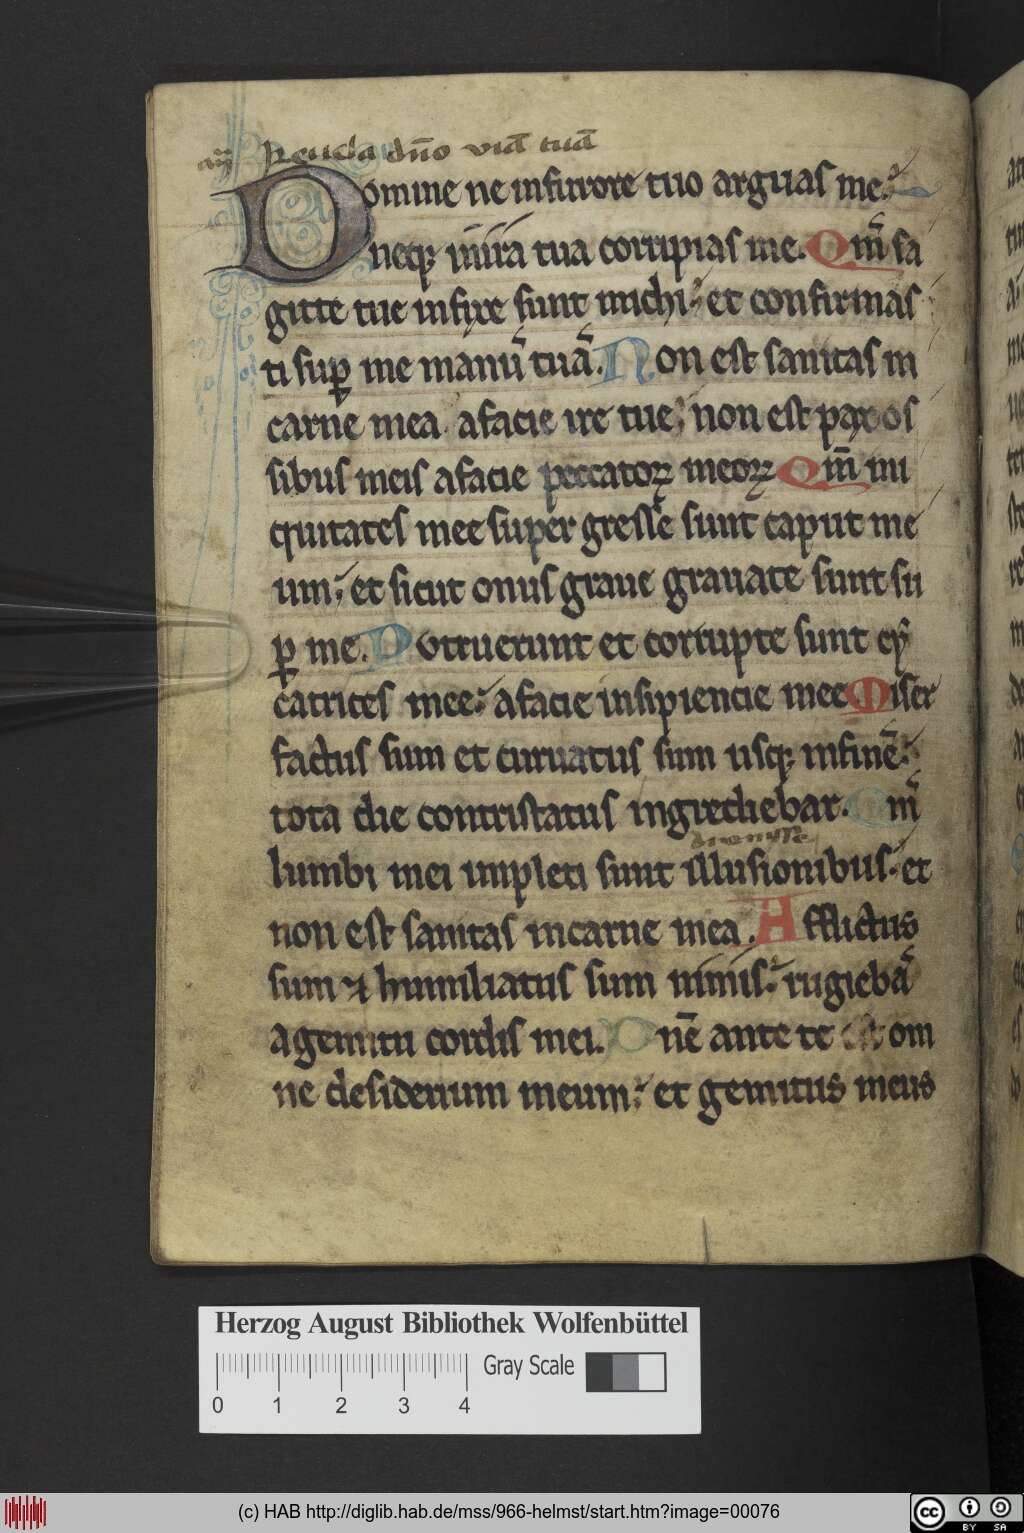 Reuela dn̄o viā tuā
Domine ne infurore tuo arguas me.
neq; inira tua corripias me. Qm̄ sa
gitte tue infixe sunt michi. et confirmas
ti suꝑ me manū tuā. Non est sanitas in
carne mea afacie ire tue, non est pax os
sibus meis afacie peccatoꝝ meoꝝ Qm̄ ini
quitates mee super gresse sunt caput me
um, et sicut onus graue grauate sunt su
ꝑ me. Putruerunt et corrupte sunt cy
catrices mee. afacie insipiencie mee Miser
factus sum et curuatus sum usq; infinē.
tota die contristatus ingrediebar. Qm̄
lumbi mei impleti sunt illusionibus. et
non est sanitas incarne mea. Afflictus
sum ⁊ humiliatus sum nimis. rugiebā
agemitu cordis mei. Dn̄e ante te est om
ne desiderium meum. et gemitus meus
Herzog August Bibliothek Wolfenbüttel
Gray Scale
0 1 2 3 4
(c) HAB http://diglib.hab.de/mss/966-helmst/start.htm?image=00076
CC BY SA